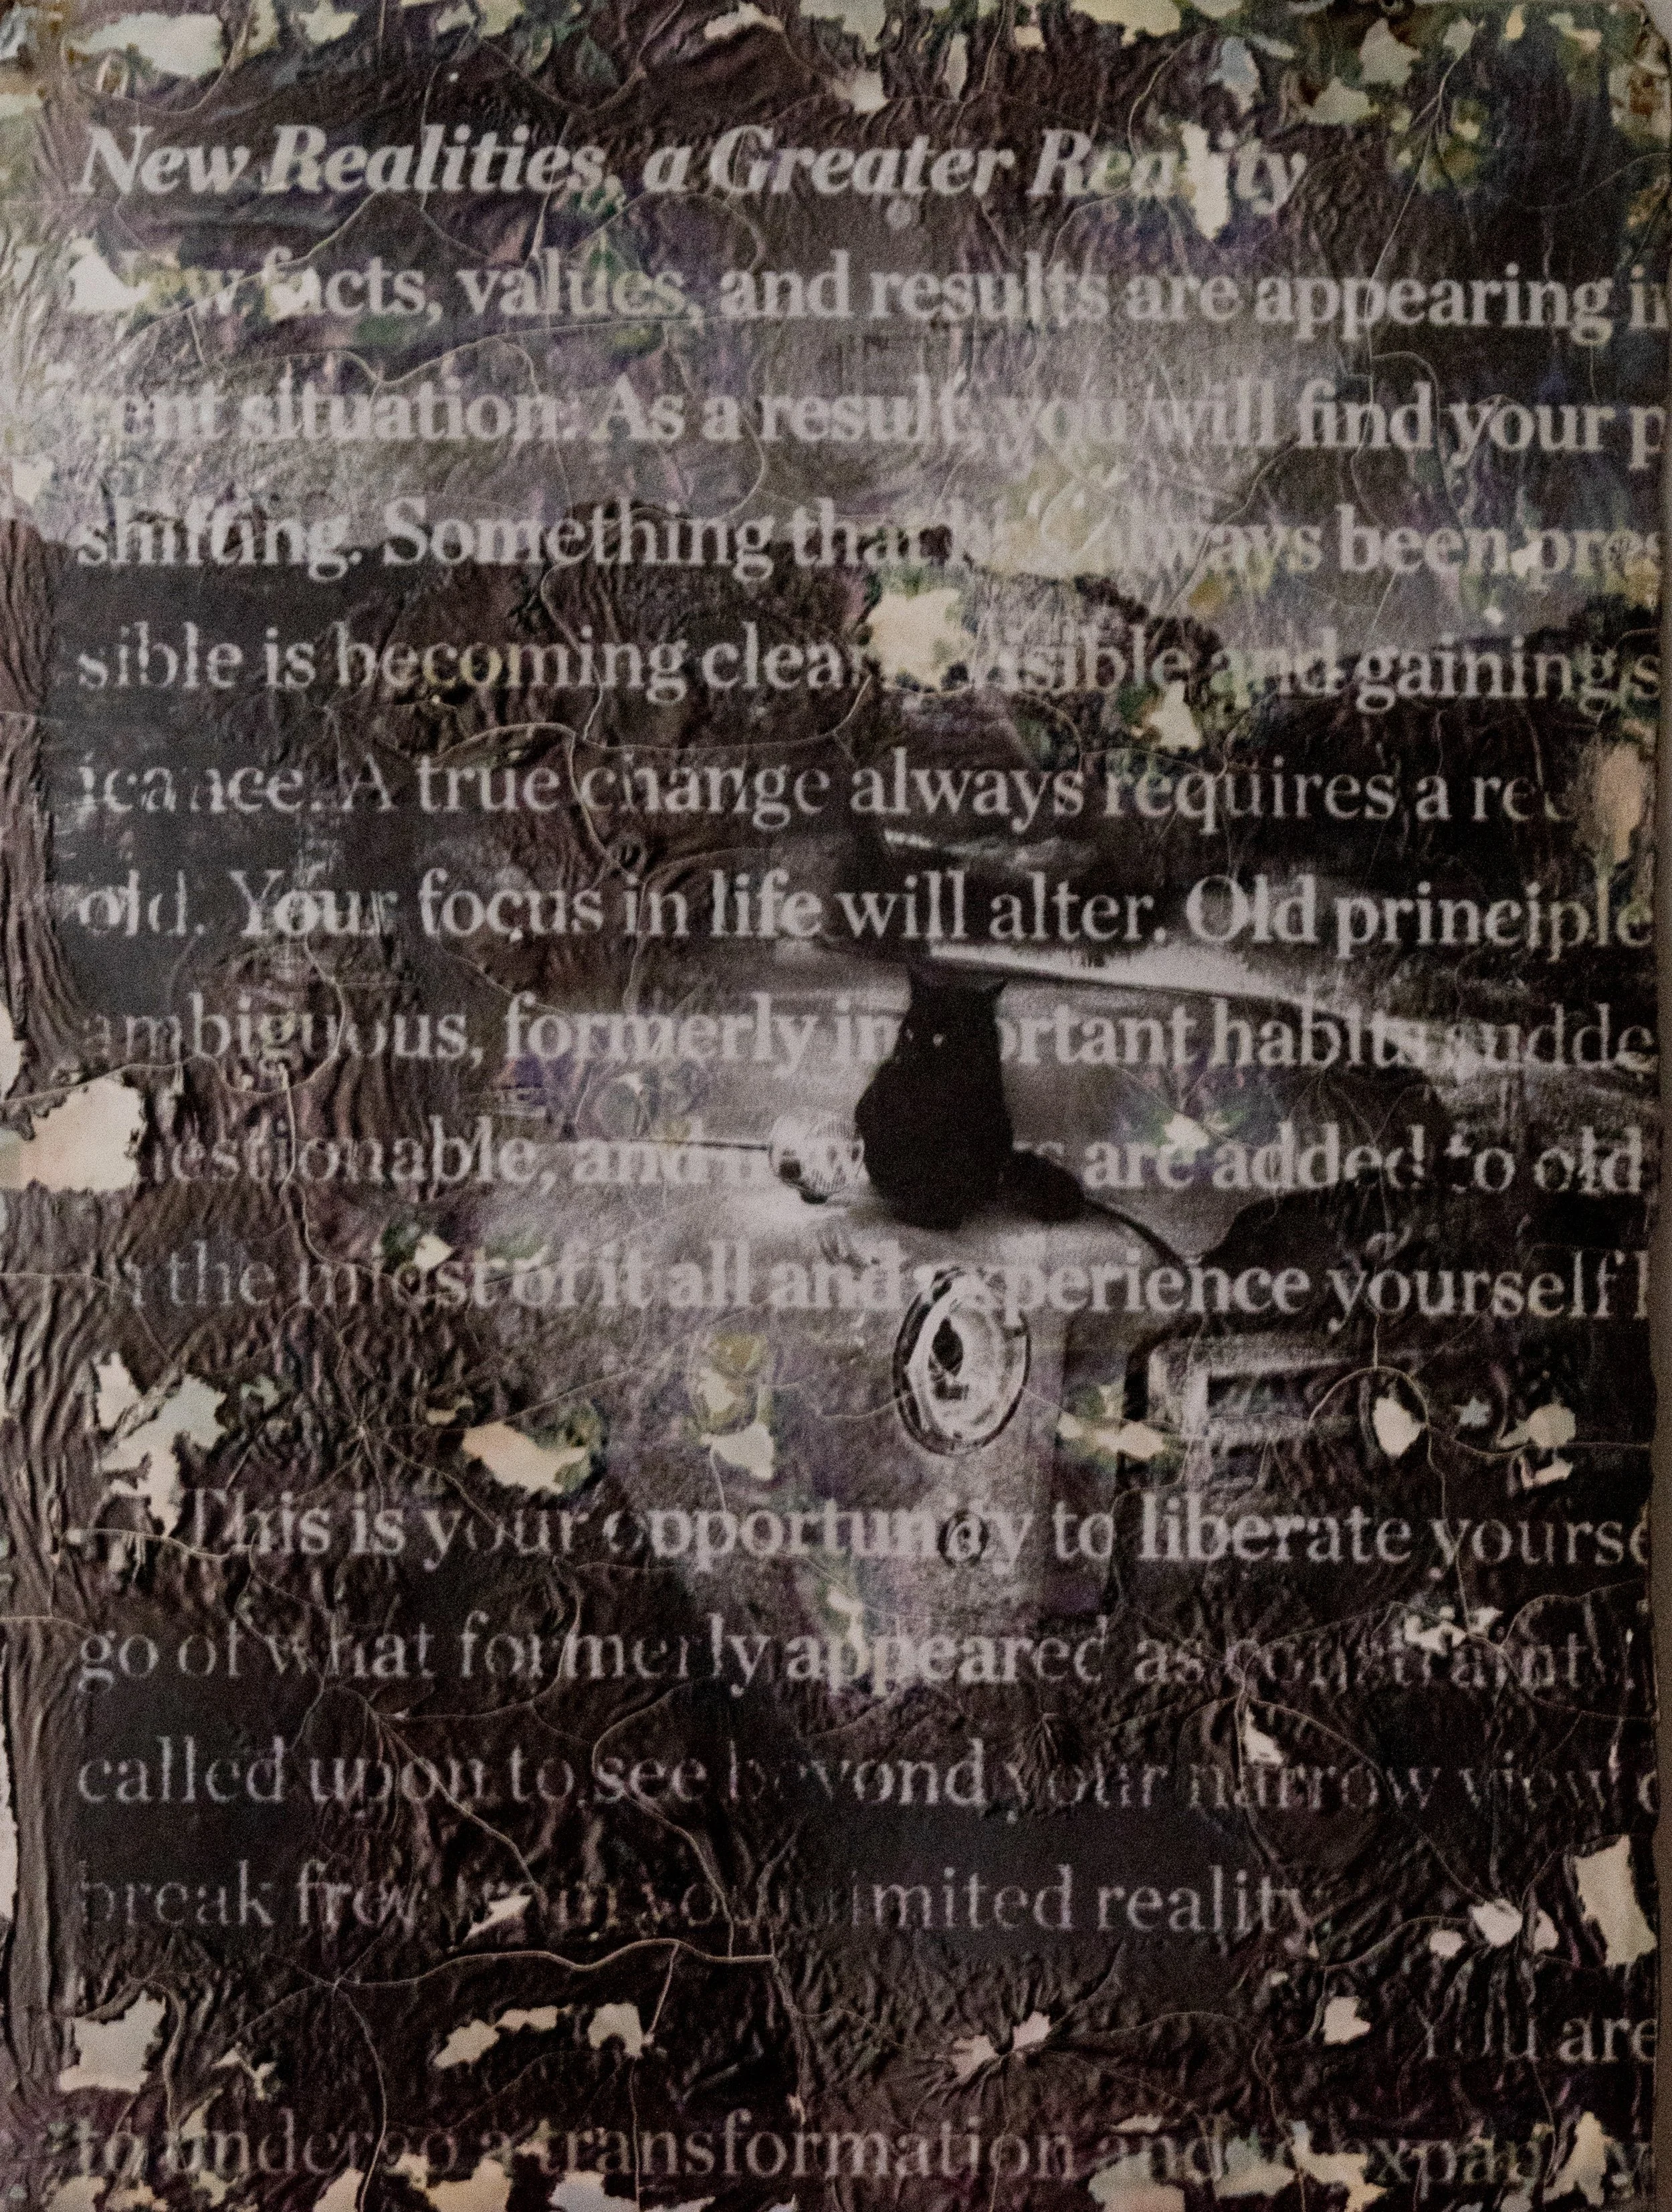 New Realities, a Greater Reality
New facts, values, and results are appearing in
rent situation. As a result, you will find your p
shifting. Something that always been pres
sible is becoming clear visible and gaining s
icance. A true change always requires a re
old. Your focus in life will alter. Old principle
ambiguous, formerly important habits sudde
questionable, and are added to old
in the midst of it all and experience yourself
This is your opportunity to liberate yourse
go of what formerly appeared as constraint.
called upon to see beyond your narrow view o
break free from your limited reality.
You are
to undergo a transformation and to expand y